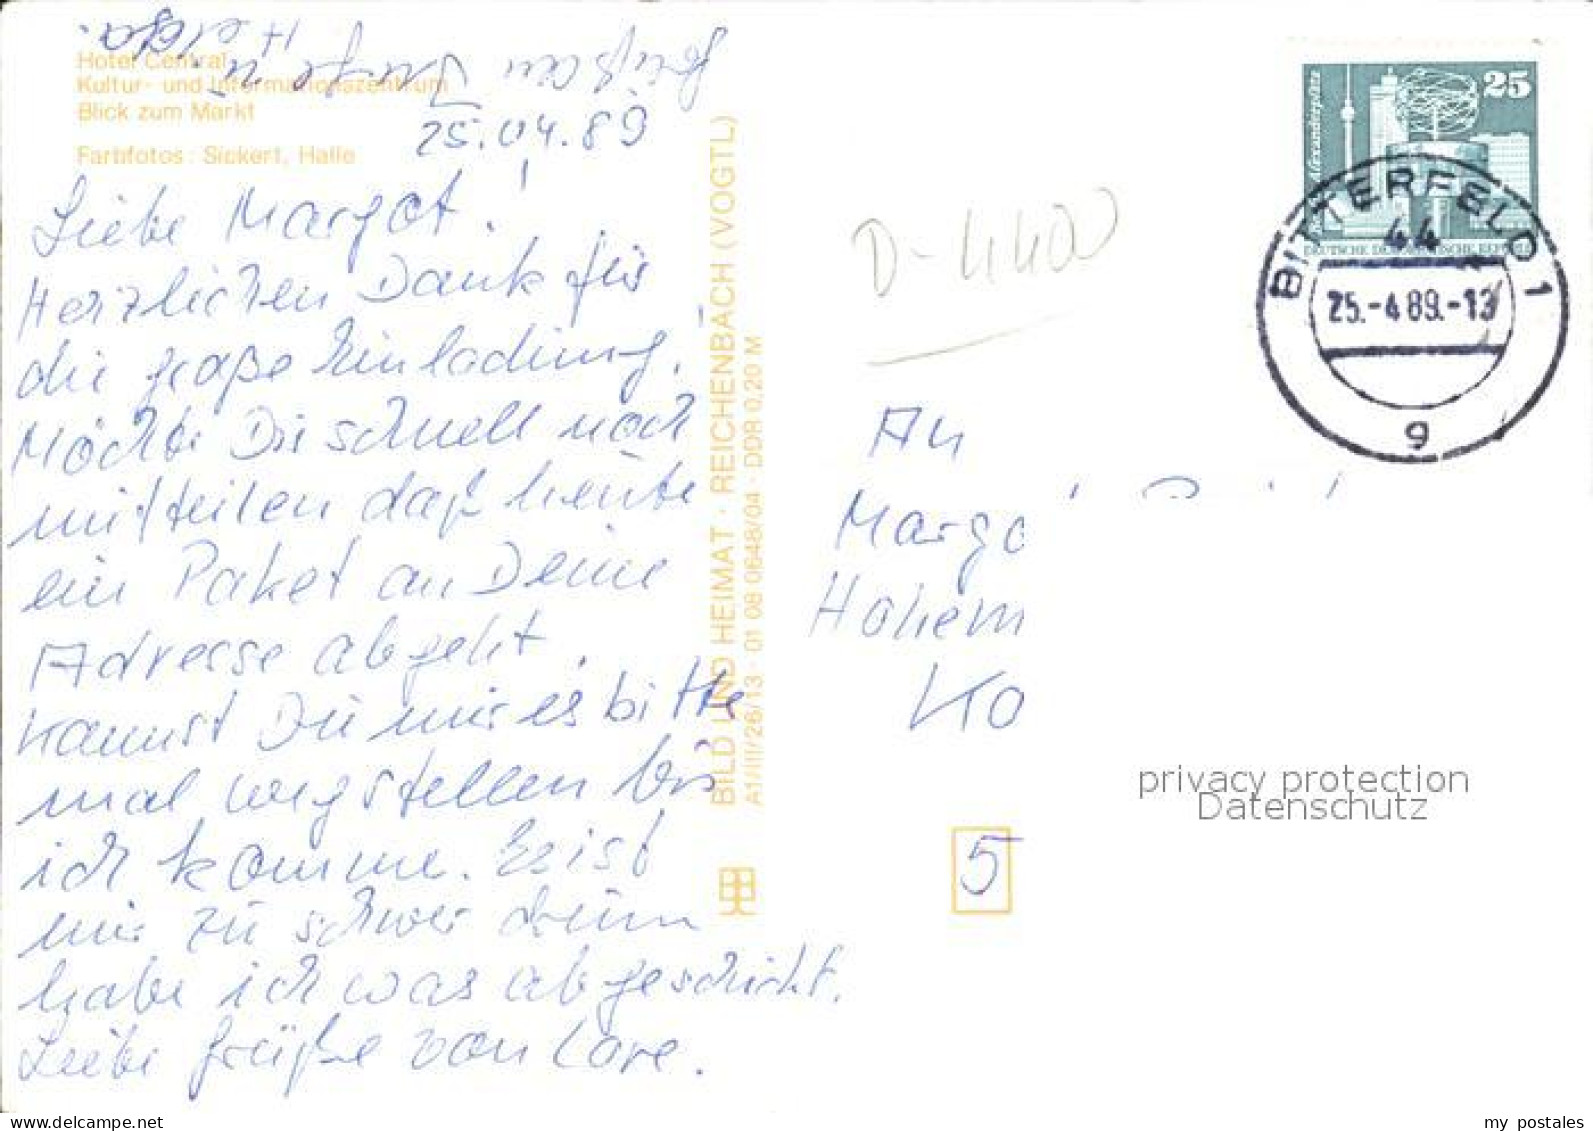 Hotel Central
Kultur- und Informationszentrum
Blick zum Markt
Farbfotos: Sickert, Halle
Grüß an Inge u.
Helga.
25.04.89
Liebe Margot!
Herzlichen Dank für
die große Einladung!
Möchte Dir schnell noch
mitteilen daß heute
ein Paket an Deine
Adresse abgeht,
kannst Du mir es bitte
mal wegstellen bis
ich komme. Es ist
mir zu schwer drum
habe ich was abgeschickt.
Liebe Grüße von Lore.
BILD UND HEIMAT · REICHENBACH (VOGTL)
A1/III/26/13 · 01 08 0648/04 · DDR 0,20 M
25
Alexanderplatz
DEUTSCHE DEMOKRATISCHE REPUBLIK
BITTERFELD 1
44
25.-4.89.-13
g
D-4400
An
Margo
Hohem
Ko
5
privacy protection
Datenschutz
www.delcampe.net
my_postales